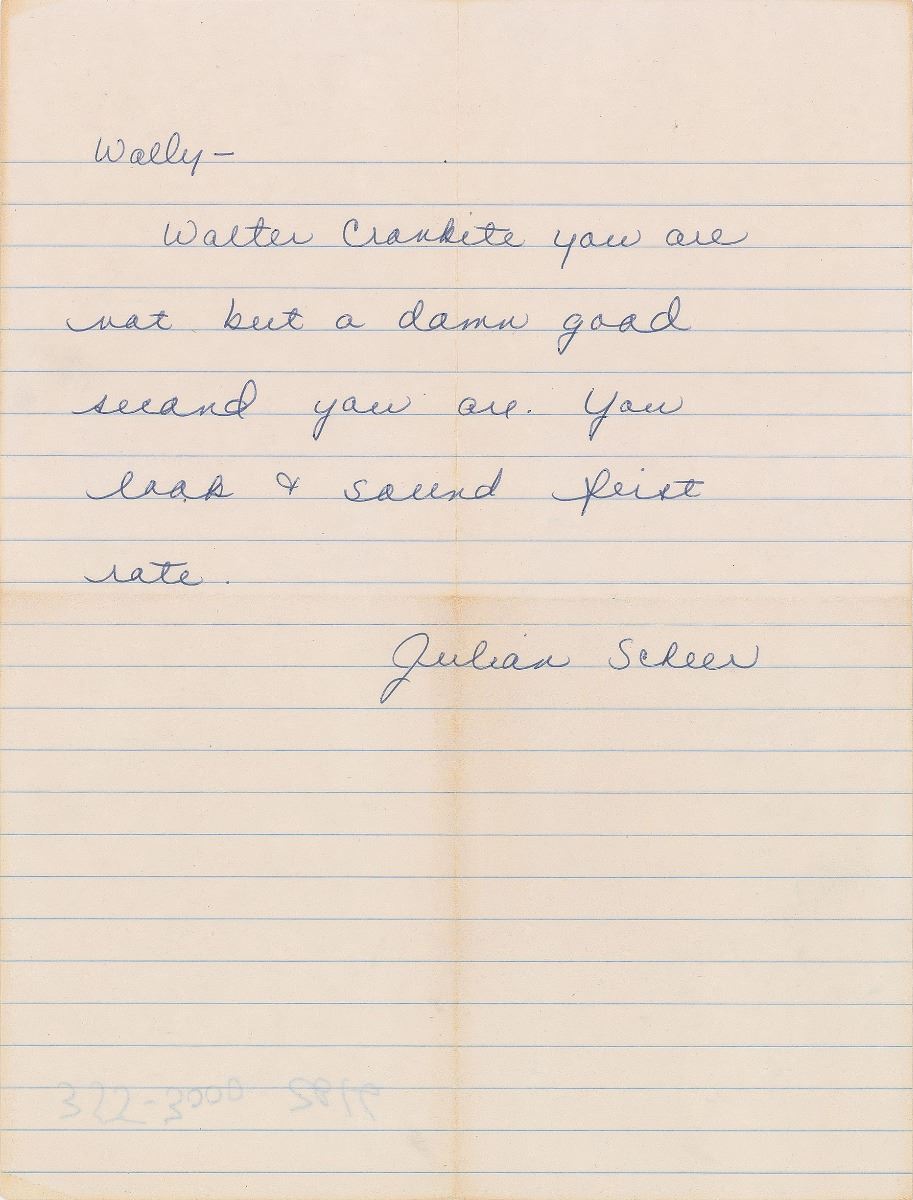 Wally-
Walter Cronkite you are
not but a damn good
second you are. You
look & sound first
rate.
Julian Scheer